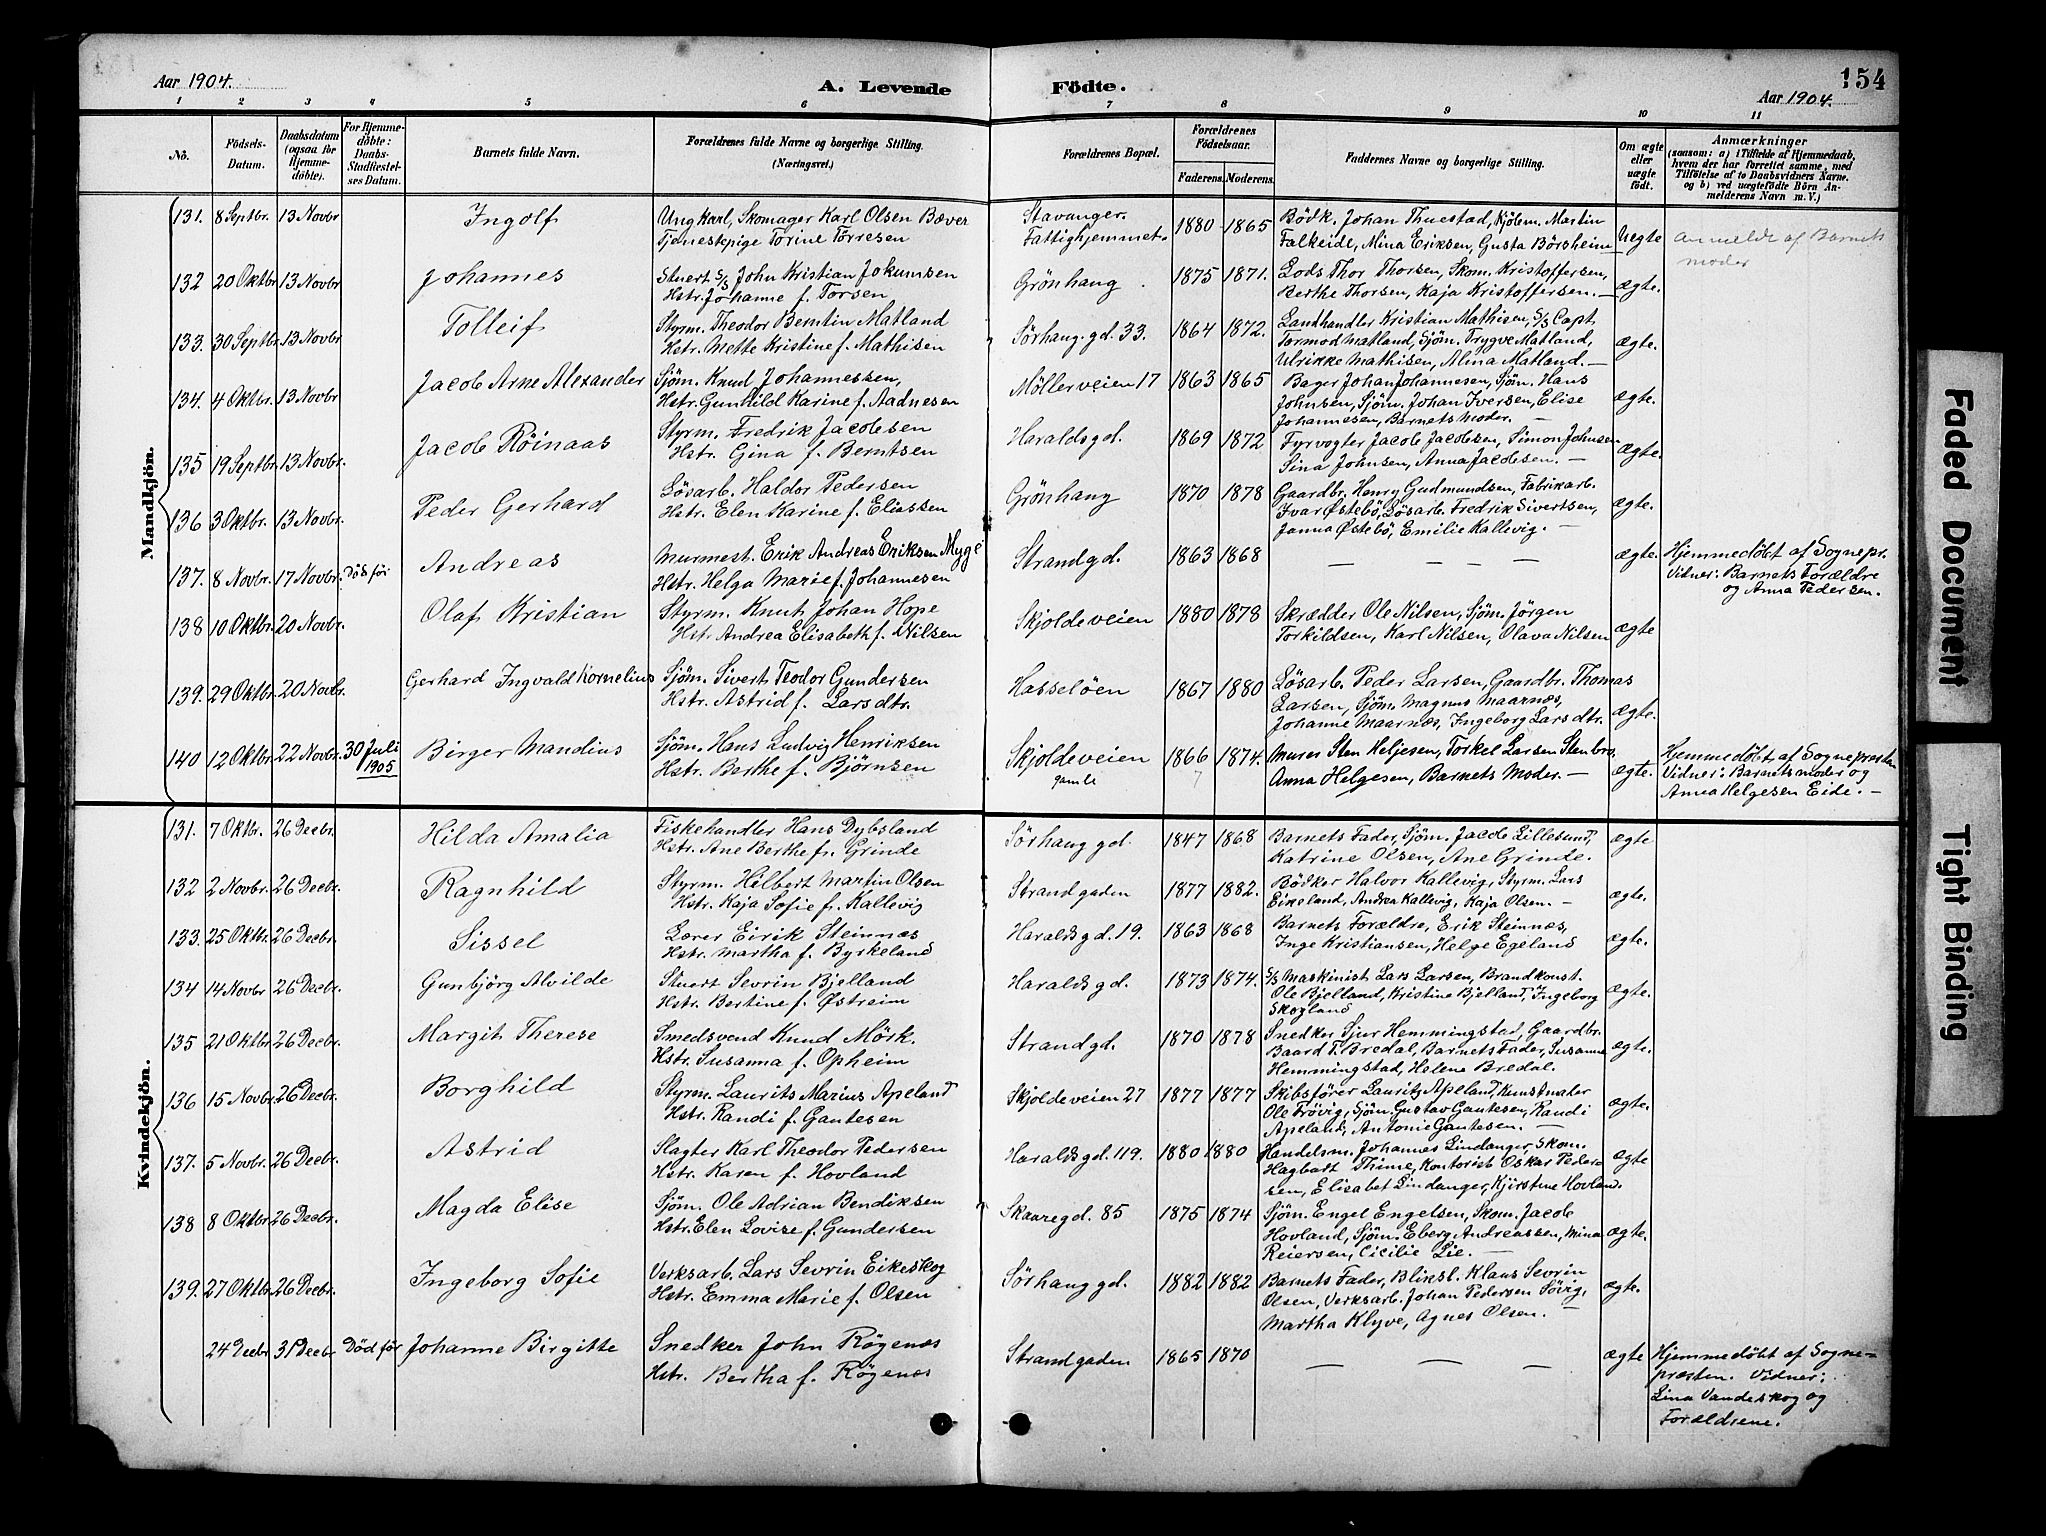 154
Aar 1904.
A. Levende Födte.
Aar 1904.
1 2 3 4 5 6 7 8 9 10 11
No.
Födsels-
Datum.
Daabsdatum
(ogsaa for
Hjemme-
döbte).
For Hjemme-
döbte:
Daabs-
Stadfæstel-
ses Datum.
Barnets fulde Navn.
Forældrenes fulde Navne og borgerlige Stilling.
(Næringsvei.)
Forældrenes Bopæl.
Forældrenes
Födselsaar.
Faderens. Moderens.
Faddernes Navne og borgerlige Stilling.
Om ægte
eller
uægte
födt.
Anmærkninger
(saasom: a) i Tilfælde af Hjemmedaab,
hvem der har forrettet samme, med
Tilföielse af to Daabsvidners Navne.
og b) ved uægtefödte Börn An-
melderens Navn m. V.)
Mandkjön.
131. 8 Septbr. 13 Novbr Ingolf Ungkarl, Skomager Karl Olsen Bæver Stavanger. 1880 1865 Bödk. Johan Thuestad, Kjölem. Martin Uegte Anmeldt af Barnets
Tjenestepige Torine Torresen Fattighjemmet. Falkeide, Mina Eriksen, Gusta Börsheim moder
132 20 Oktbr 13 Novbr Johannes Stuert S/S John Kristian Jokumsen Grönhang 1875 1871. Lods Thor Thorsen, Skom. Kristoffersen, ægte.
Hstr. Johanne f. Torsen Berthe Thorsen, Kaja Kristoffersen. —
133. 30 Septbr 13 Novbr Tolleif Styrm. Theodor Berntin Matland Sörhang. gd. 33. 1864 1872. Landhandler Kristian Mathisen, S/S Capt. ægte.
Hstr. Mette Kristine f. Mathisen Tormod Matland, Sjöm. Trygve Matland,
Ulrikke Mathisen, Alina Matland. —
134. 4 Oktbr. 13 Novbr Jacob Arne Alexander Sjöm. Knud Johannessen, Möllerveien 17 1863 1865 Bager Johan Johannesen, Sjöm. Hans ægte.
Hstr. Gunhild Karine f. Aadnesen Johnsen, Sjöm. Johan Iversen, Elise
Johannesen, Barnets Moder. —
135 19 Septbr. 13 Novbr. Jacob Röinaas Styrm. Fredrik Jacobsen Haraldsgd. 1869 1872 Fyrvogter Jacob Jacobsen, Simon Johnsen ægte.
Hstr. Gina f. Berntsen Sina Johnsen, Anna Jacobsen. —
136 3 Oktbr. 13 Novbr. Peder Gerhard Lösarb. Haldor Pedersen Grönhang 1870 1878 Gaardbr. Henry Gudmundsen, Fabrikarb. ægte.
Hstr. Elen Karine f. Eliassen Ivar Østebö, Lösarb. Fredrik Sivertsen,
Janna Østebö, Emilie Kallevig. —
137. 8 Novbr. 17 Novbr. död för Andreas Murmest. Erik Andreas Eriksen Myge Strandgd. 1863 1868 — — — — ægte. Hjemmedöbt af Sognepr.
Hstr. Helga Marie f. Johannesen Vidner: Barnets Forældre
og Anna Pedersen.
138 10 Oktbr. 20 Novbr. Olaf Kristian Styrm. Knut Johan Hope Skjoldeveien 1880 1878 Skrædder Ole Nilsen, Sjöm. Jörgen ægte
Hstr. Andrea Elisabeth f. Nilsen Torkildsen, Karl Nilsen, Olava Nilsen
139. 29 Oktbr. 20 Novbr. Gerhard Ingvald Kornelius Sjöm. Sivert Teodor Gundersen Hasselöen 1867 1880 Lösarb. Peder Larsen, Gaardbr. Thomas ægte.
Hstr. Astrid f. Larsdtr. Larsen, Sjöm. Magnus Maarnæs,
Johanne Maarnæs, Ingeborg Larsdtr.
140 12 Oktbr. 22 Novbr. 30 Juli Birger Mandius Sjöm. Hans Ludvig Henriksen Skjoldeveien 1866 1874. Murer Sten Heljesen, Torkel Larsen Stenbro, ægte. Hjemmedöbt af Sognepresten
1905 Hstr. Berthe f. Björnsen gamle 7 Anna Helgesen, Barnets Moder. — Vidner: Barnets moder og
Anna Helgesen Eide. —
Kvindekjön.
131. 7 Oktbr. 26 Decbr. Hilda Amalia Fiskehandler Hans Dybsland Sörhang gd. 1847 1868 Barnets Fader, Sjöm. Jacob Lillesund, ægte
Hstr. Ane Berthe f. Grinde Katrine Olsen, Ane Grinde.
132 2 Novbr. 26 Decbr. Ragnhild Styrm. Hilbert Martin Olsen Strandgaden 1877 1882. Bödker Halvor Kallevig, Styrm. Lars ægte.
Hstr. Kaja Sofie f. Kallevig Eikeland, Andrea Kallevig, Kaja Olsen. —
133. 25 Oktbr. 26 Decbr. Sissel Lærer Eirik Steinnæs Haraldsgd. 19. 1863 1868 Barnets Forældre, Erik Steinnæs, ægte.
Hstr. Martha f. Byrkeland Inge Kristiansen, Helge Egeland
134 14 Novbr 26 Decbr. Gunbjörg Alvilde Stuert Sevrin Bjelland Haraldsgd. 1873 1874. S/S Maskinist Lars Larsen, Brandkonst. ægte.
Hstr. Bertine f. Østreim Ole Bjelland, Kristine Bjelland, Ingeborg
Skogland
135 21 Oktbr 26 Decbr. Margit Therese Smedsvend Knud Mörk. Strandgd. 1870 1878 Snedker Sjur Hemmingstad, Gaardbr. ægte.
Hstr. Susanna f. Opheim Baard T. Bredal, Barnets Fader, Susanne
Hemmingstad, Helene Bredal.
136 15 Novbr. 26 Decbr. Borghild Styrm. Laurits Marius Apeland Skjoldeveien 27 1877 1877 Skibsförer Lauritz Apeland, Kunstmaler ægte.
Hstr. Randi f. Gautesen Ole Frövig, Sjöm. Gustav Gautesen, Randi
Apeland, Antonie Gautesen. —
137. 5 Novbr. 26 Decbr. Astrid Slagter Karl Theodor Pedersen Haraldsgd. 119. 1880 1880 Handelsm. Johannes Lindanger, Skom. ægte
Hstr. Karen f. Hovland Hagbart Thime, Kontorist Oskar Peder-
sen, Elisabet Lindanger, Kjirstine Hovland.
138 8 Oktbr 26 Decbr. Magda Elise Sjöm. Ole Adrian Bendiksen Skaaregd. 85 1875 1874 Sjöm. Engel Engelsen, Skom. Jacob ægte.
Hstr. Elen Lovise f. Gundersen Hovland, Sjöm. Eberg Andreassen, Mina
Reiersen, Cicilie Lie. —
139. 27 Oktbr. 26 Decbr. Ingeborg Sofie Verksarb. Lars Sevrin Eikeskog Sörhang gd. 1882 1882 Barnets Fader, Bliksl. Klaus Sevrin ægte.
Hstr. Emma Marie f. Olsen Olsen, Verksarb. Johan Pedersen Sövig,
Martha Klyve, Agnes Olsen. —
24 Decbr 31 Decbr Död för Johanne Birgitte Snedker John Rögenæs Strandgaden 1865 1870 — — — ægte Hjemmedöbt af Sogne-
Hstr. Bertha f. Rögenæs præsten. Vidner:
Lina Vandeskog og
Forældrene.
Faded Document
Tight Binding